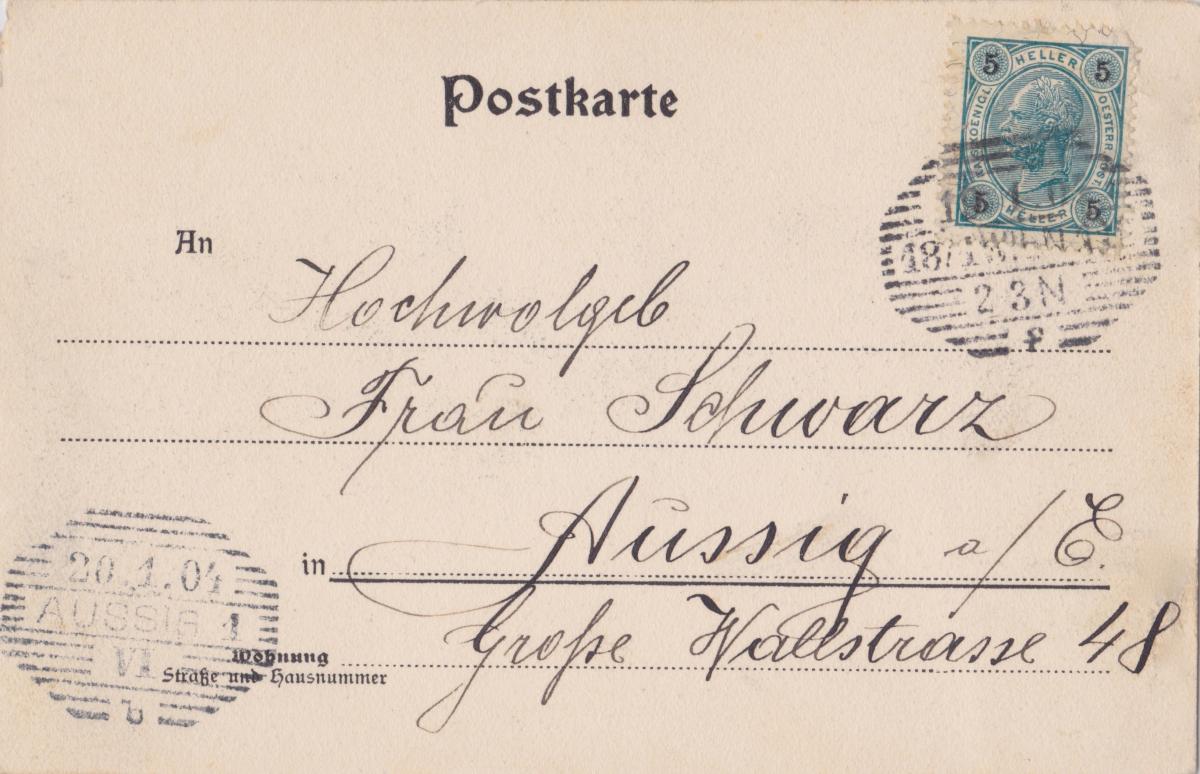 Postkarte
5 HELLER 5
KAIS. KOENIGL. OESTERR. POST.
5 HELLER 5
WIEN
2-3N
An
Hochwolgeb
Frau Schwarz
in Aussig a/E.
Große Wallstrasse 48
Wohnung
Straße und Hausnummer
20.1.04
AUSSIG 1
VI
b